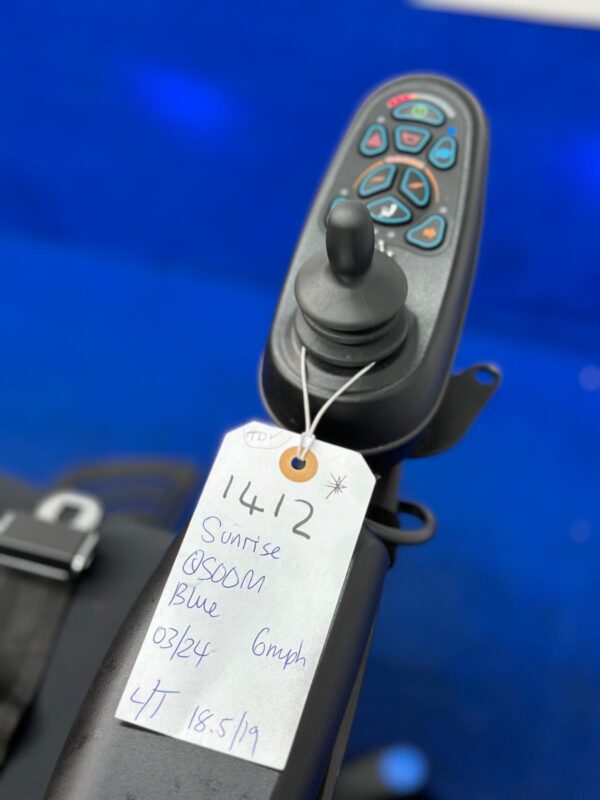 TDV
1412
Sunrise
Q500M
Blue
03/24 6mph
L/T 18.5/19